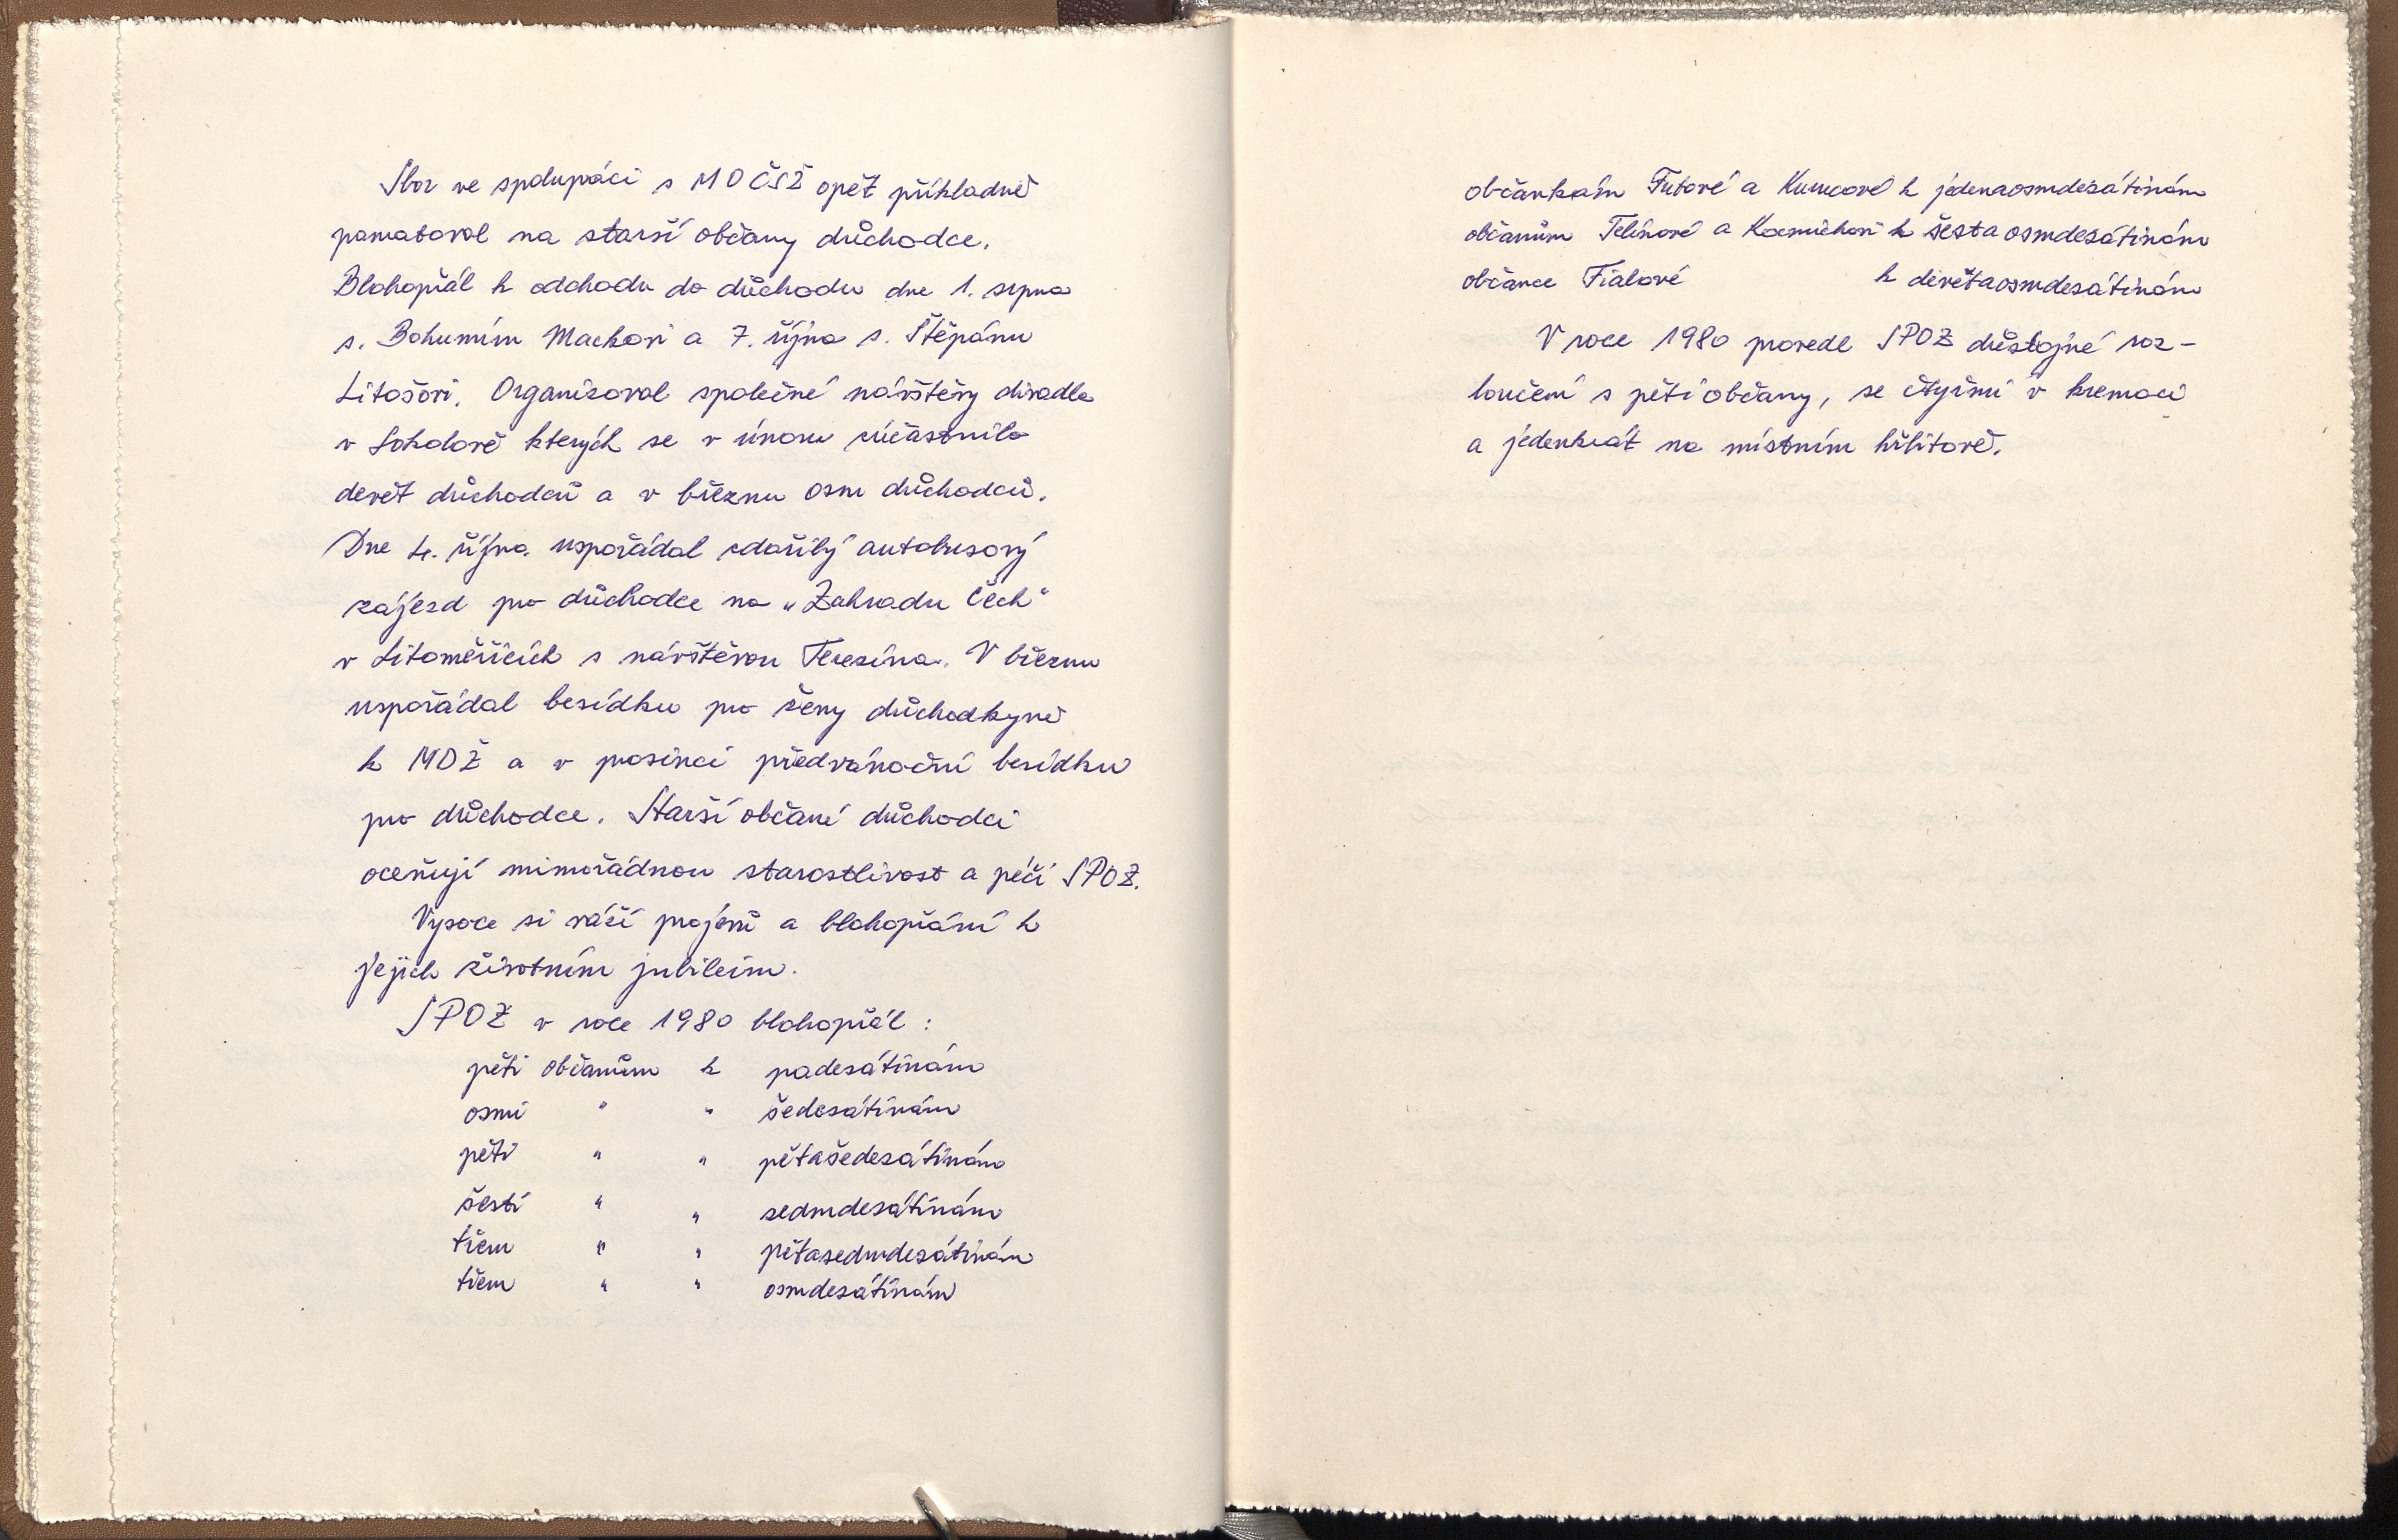 Sbor ve spolupráci s MO ČSŽ opět příkladně
pamatoval na starší občany důchodce.
Blahopřál k odchodu do důchodu dne 1. srpna
s. Bohumím Mackovi a 7. října s. Štěpánu
Litošovi. Organizoval společné návštěvy divadla
v Sokolově kterých se v únoru zúčastnilo
devět důchodců a v březnu osm důchodců.
Dne 4. října uspořádal zdařilý autobusový
zájezd pro důchodce na „Zahradu Čech"
v Litoměřicích s návštěvou Terezína. V březnu
uspořádal besídku pro ženy důchodkyně
k MDŽ a v prosinci předvánoční besídku
pro důchodce. Starší občané důchodci
oceňují mimořádnou starostlivost a péči SPOZ.
Vysoce si váží projevů a blahopřání k
jejich životním jubileím.
SPOZ v roce 1980 blahopřál :
pěti občanům k padesátinám
osmi " " šedesátinám
pěti " " pětašedesátinám
šesti " " sedmdesátinám
třem " " pětasedmdesátinám
třem " " osmdesátinám
občankám a k jedenaosmdesátinám
občanům a k šestaosmdesátinám
občance Fialové k devětaosmdesátinám
V roce 1980 provedl SPOZ důstojné roz-
loučení s pěti občany, se čtyřmi v kremaci
a jedenkrát na místním hřbitově.